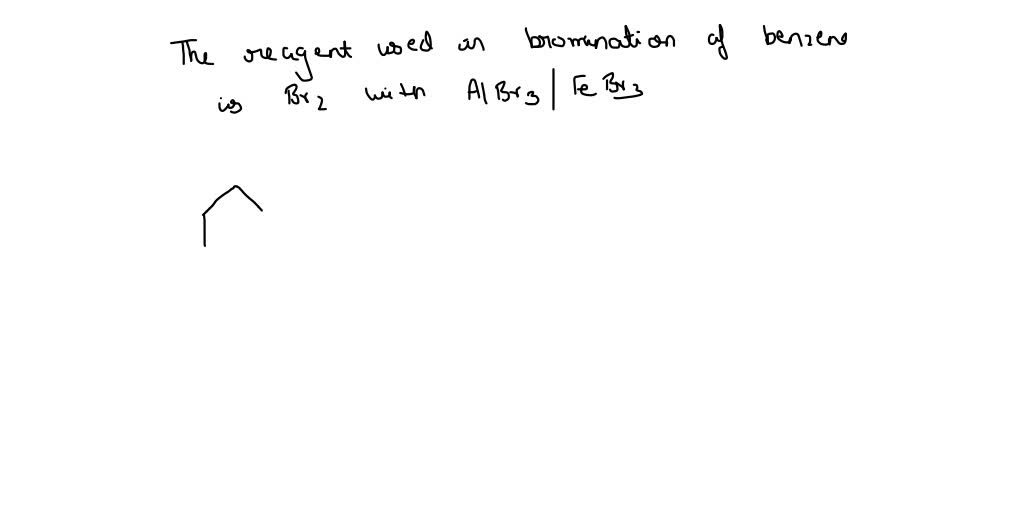 The reagent used in bromination of benzene
is Br2 with AlBr3 | FeBr3